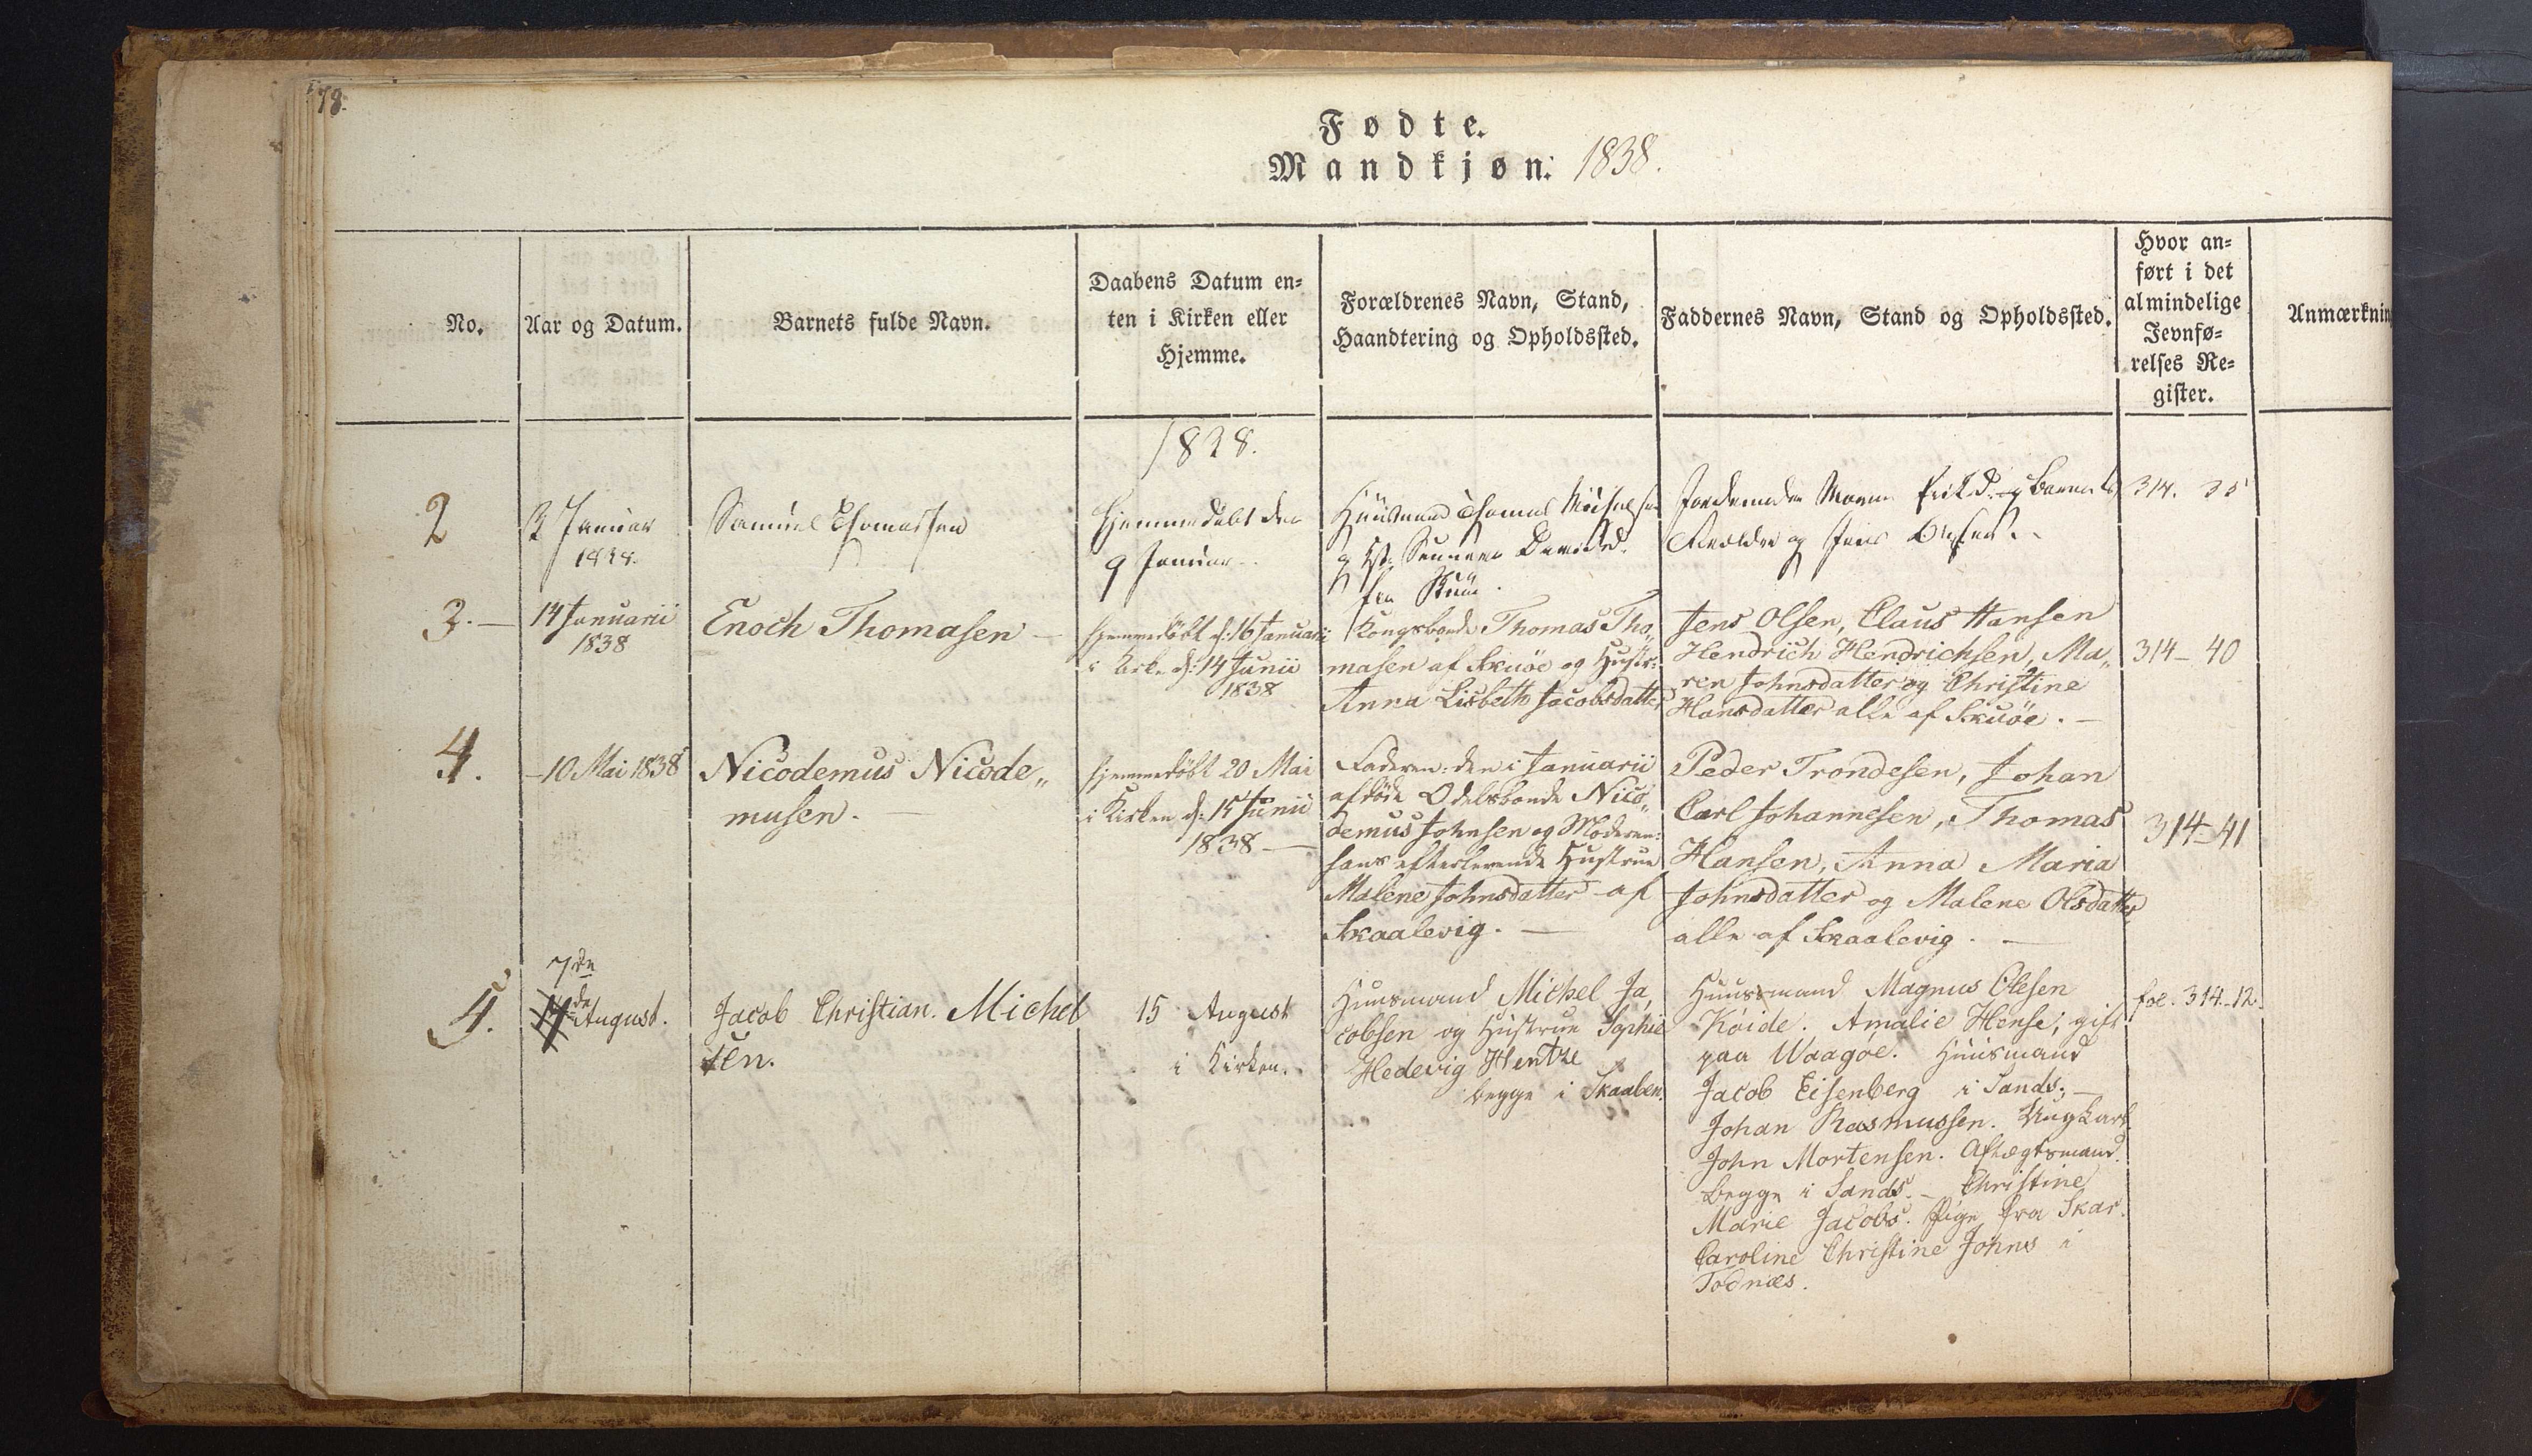 78.
Fødte.
Mandkjøn: 1838.
No.
Aar og Datum.
Barnets fulde Navn.
Daabens Datum en=
ten i Kirken eller
Hjemme.
Forældrenes Navn, Stand,
Haandtering og Opholdssted.
Faddernes Navn, Stand og Opholdssted.
Hvor an=
ført i det
almindelige
Jevnfø=
relses Re=
gister.
Anmærknin
1838.
2
3 Januar
1838.
Samuel Thomassen
Hjemmedøbt den
9 Januar
Huusmand Thomas Michelsen
og Sunneva Davidsd.
fra Skuøe.
Jordemoder Maren og Barnets
Forældre og Jens Olsen.
314. 35
3.
14 Januarii
1838
Enoch Thomasen
hjemmedöbt d: 16 Januarii
i Kirke d: 14 Junii
1838
Kongsbonde Thomas Tho„
masen af Skuöe og Hustr:
Anna Lisbeth Jacobsdatter
Jens Olsen, Claus Hansen
Hendrich Hendrichsen, Ma„
ren Johnsdatter og Christine
Hansdatter alle af Skuöe.
314 - 40
4.
10 Mai 1838
Nicodemus Nicode„
musen.
hjemmedöbt 20 Mai
i Kirken d: 15 Junii
1838
Faderen: den i Januarii
afdöde Odelsbonde Nico„
demus Johnsen og Moderen:
hans efterlevende Hustrue
Malene Johnsdatter af
Skaalevig.
Peder Trondesen, Johan
Carl Johannesen, Thomas
Hansen, Anna Maria
Johnsdatter og Malene Olsdatter
alle af Skaalevig.
314-41
5.
7de
August.
Jacob Christian. Michel
sen.
15 August
i Kirken.
Huusmand Michel Ja„
cobsen og Hustrue Sophie
Hedevig Hentze
begge i Skaalen.
Huusmand Magnus Olesen
Köide. Amalie Hense, gift
paa Waagøe. Huusmand
Jacob Eisenberg i Sands,
Johan Rasmussen. Ungkarl.
John Mortensen. Aftægtsmand.
begge i Sands. Christine
Marie Jacobs. Pige fra Skar.
Caroline Christine Johns i
Todnæs.
fol. 314-12.